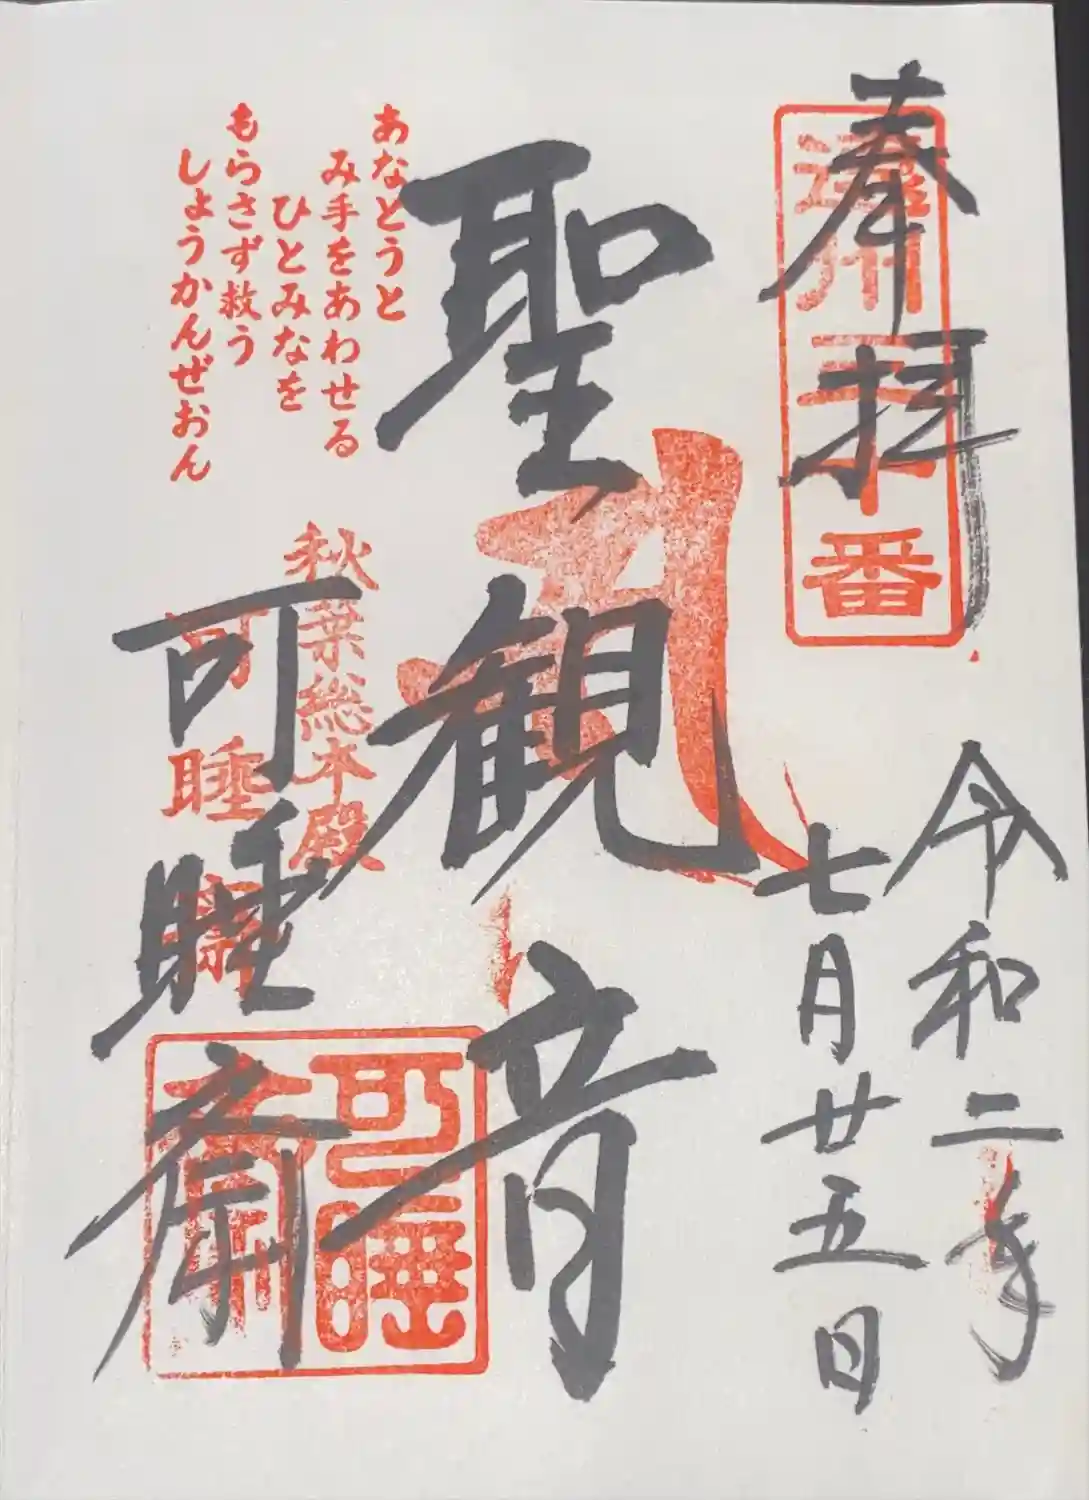 奉拝
遠州三十番
令和二年
七月廿五日
聖観音
あなとうと
み手をあわせる
ひとみなを
もらさず救う
しょうかんぜおん
秋葉総本殿
可睡斎
可睡齋
可睡
齋